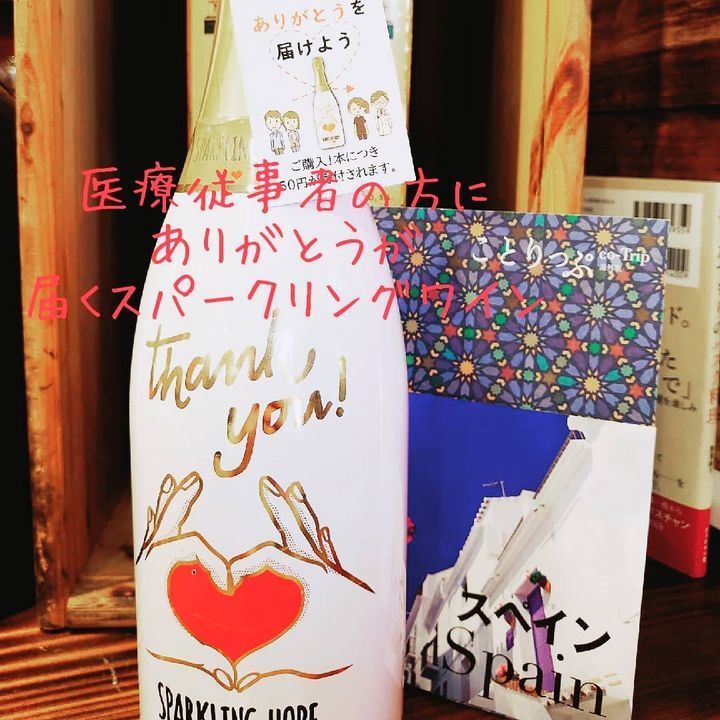 ありがとうを
届けよう
ご購入1本につき
50円が寄付されます。
SPARKLING
医療従事者の方に
ありがとうが
届くスパークリングワイン
thank
you!
SPARKLING HOPE
ことりっぷ co-Trip
海外版
スペイン
Spain